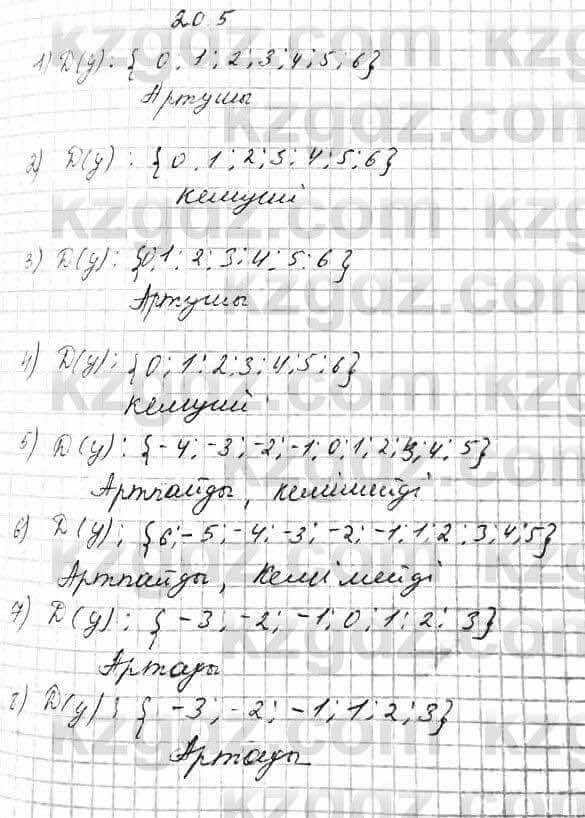 20 5
1) D(y): { 0; 1; 2; 3; 4; 5; 6}
Артушы
2) D(y): {0; 1; 2; 3; 4; 5; 6}
Кемуші
3) D(y): {0; 1; 2; 3; 4; 5; 6}
Артушы
4) D(y): {0; 1; 2; 3; 4; 5; 6}
Кемуші
5) D(y): {-4; -3; -2; -1; 0; 1; 2; 3; 4; 5}
Артпайды, кемімейді
6) D(y): {6; -5; -4; -3; -2; -1; 1; 2; 3; 4; 5}
Артпайды, Кемімейді
7) D(y): { -3; -2; -1; 0; 1; 2; 3}
Артады
8) D(y): { -3; -2; -1; 1; 2; 3}
Артады
kzgdz.com